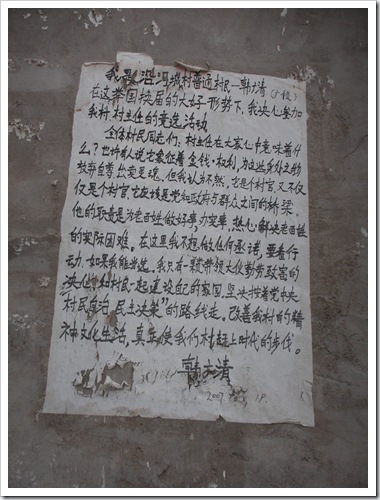 我是沿冯城村普通村民—韩大清
在这举国换届的大好形势下,我决心参加
我村村主任的竞选活动
全体村民同志们:村主任在大家心中意味着什
么?也许有人说它象征着金钱、权利,为这些身外之物
放弃自尊,出卖灵魂。但我认为不然,它是个村官,又不仅
仅是个村官,它应该是党和政府与群众之间的桥梁。
他的职责是为老百姓做好事,办实事,热心解决老百姓
的实际困难。在这里我不想做任何承诺,要看行
动。如果我能当选,我只有一颗带领大伙勤劳致富的
决心,和村民一起建设自己的家园,坚决按着党中央
"村民自治,民主决策"的路线走,改善我村的精
神文化生活,真正使我们村赶上时代的步伐。
韩大清
2009